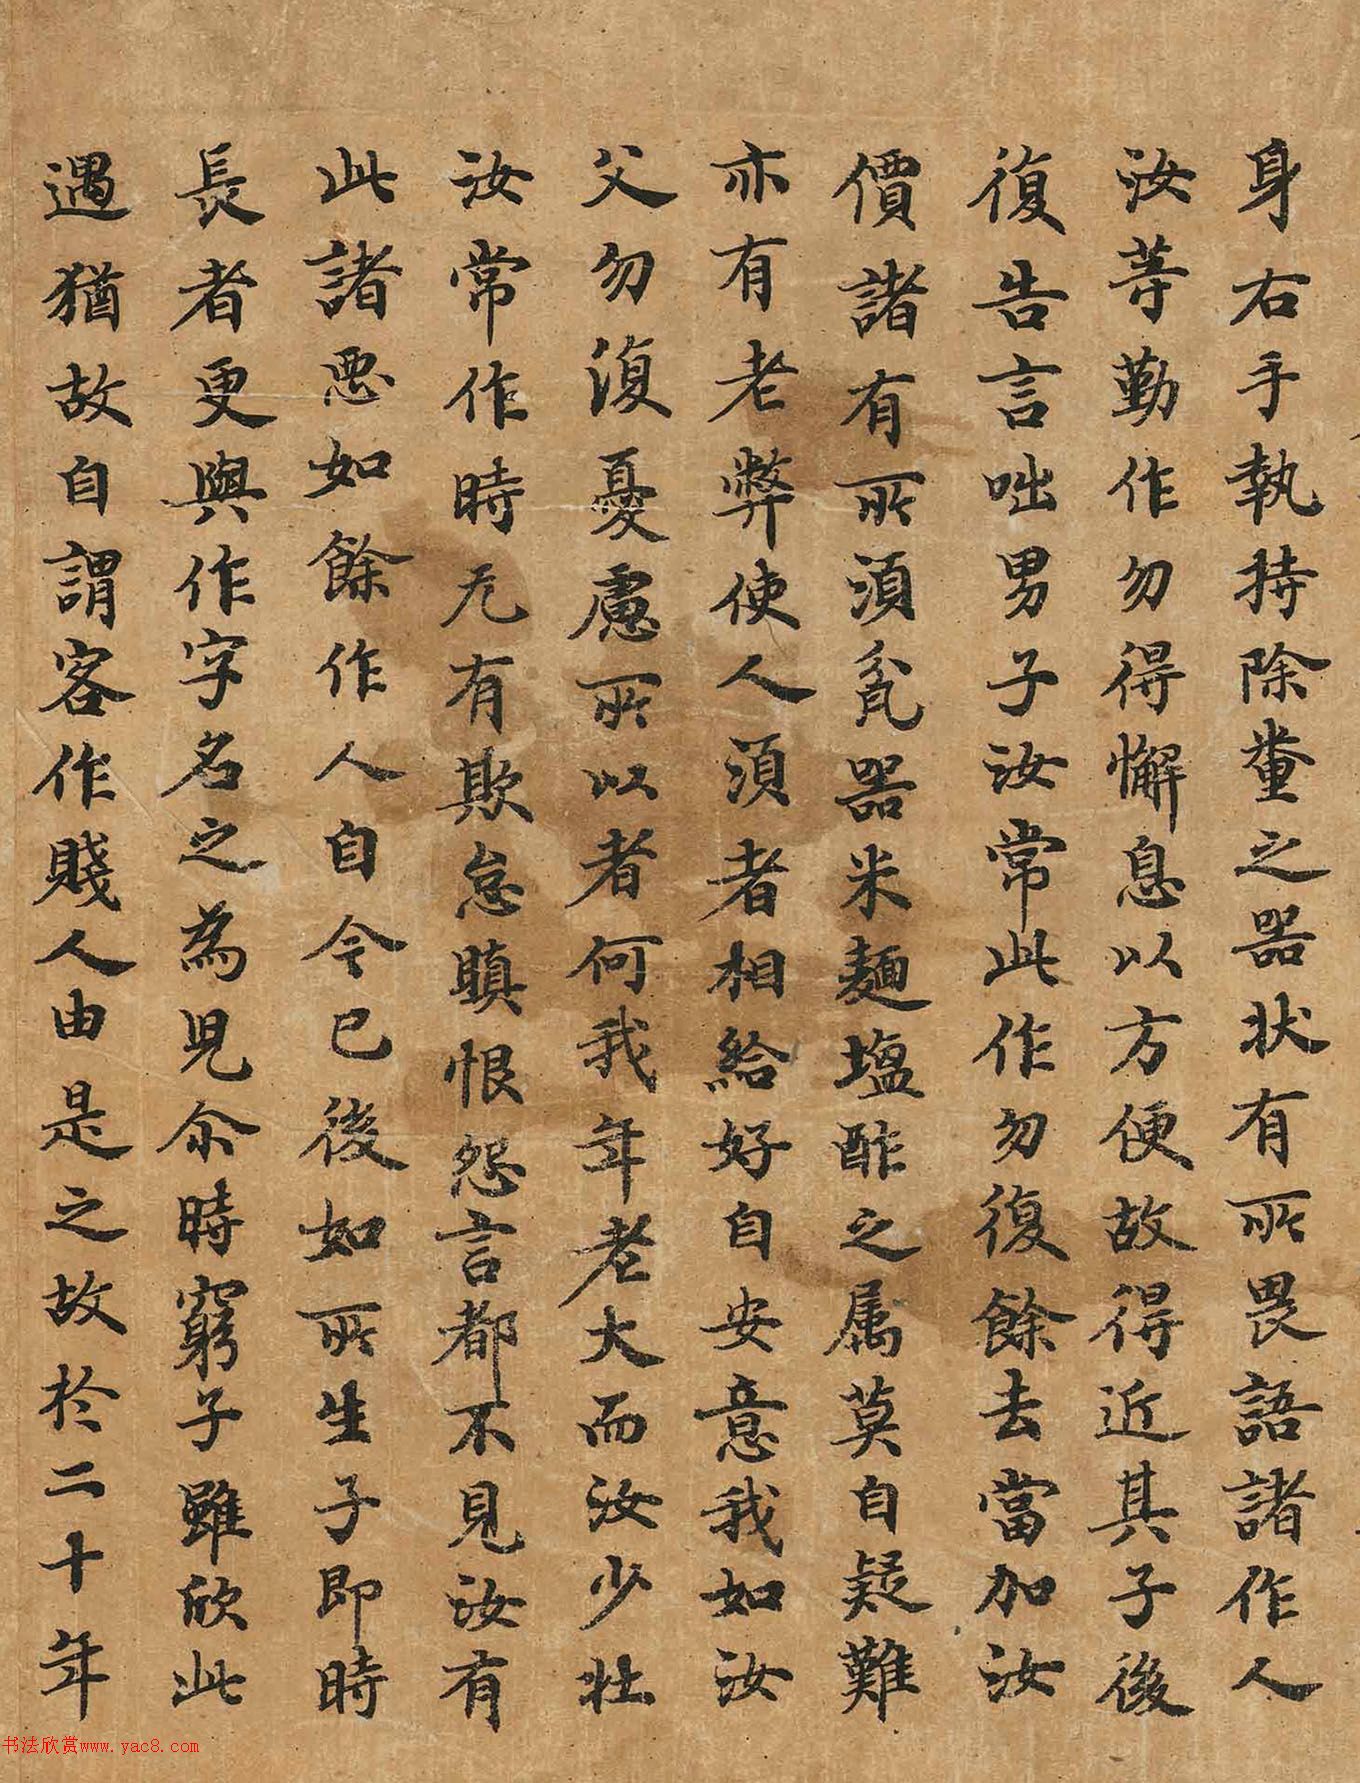 身右手執持除糞之器状有所畏語諸作人
汝等勤作勿得懈息以方便故得近其子後
復告言咄男子汝常此作勿復餘去當加汝
價諸有所須瓫器米麺塩酢之属莫自疑難
亦有老弊使人須者相給好自安意我如汝
父勿復憂慮所以者何我年老大而汝少壮
汝常作時无有欺怠瞋恨怨言都不見汝有
此諸悪如餘作人自今已後如所生子即時
長者更與作字名之為兒尒時窮子雖欣此
遇猶故自謂客作賤人由是之故於二十年
书法欣赏www.yac8.com